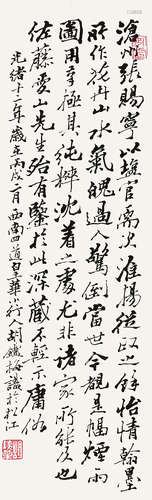 滄州張賜寧以鹽官需次淮揚從政之餘怡情翰墨
所作花卉山水氣魄過人驚倒當世今觀是幅煙雨
圖用筆極其純粹沈着之處尤非諸家所能及也
佐藤愛山先生殆有鑒於此深藏不輕示庸俗
光緒十二年歲在丙戌二月西南四道皇華小行人胡鐵梅識於松江